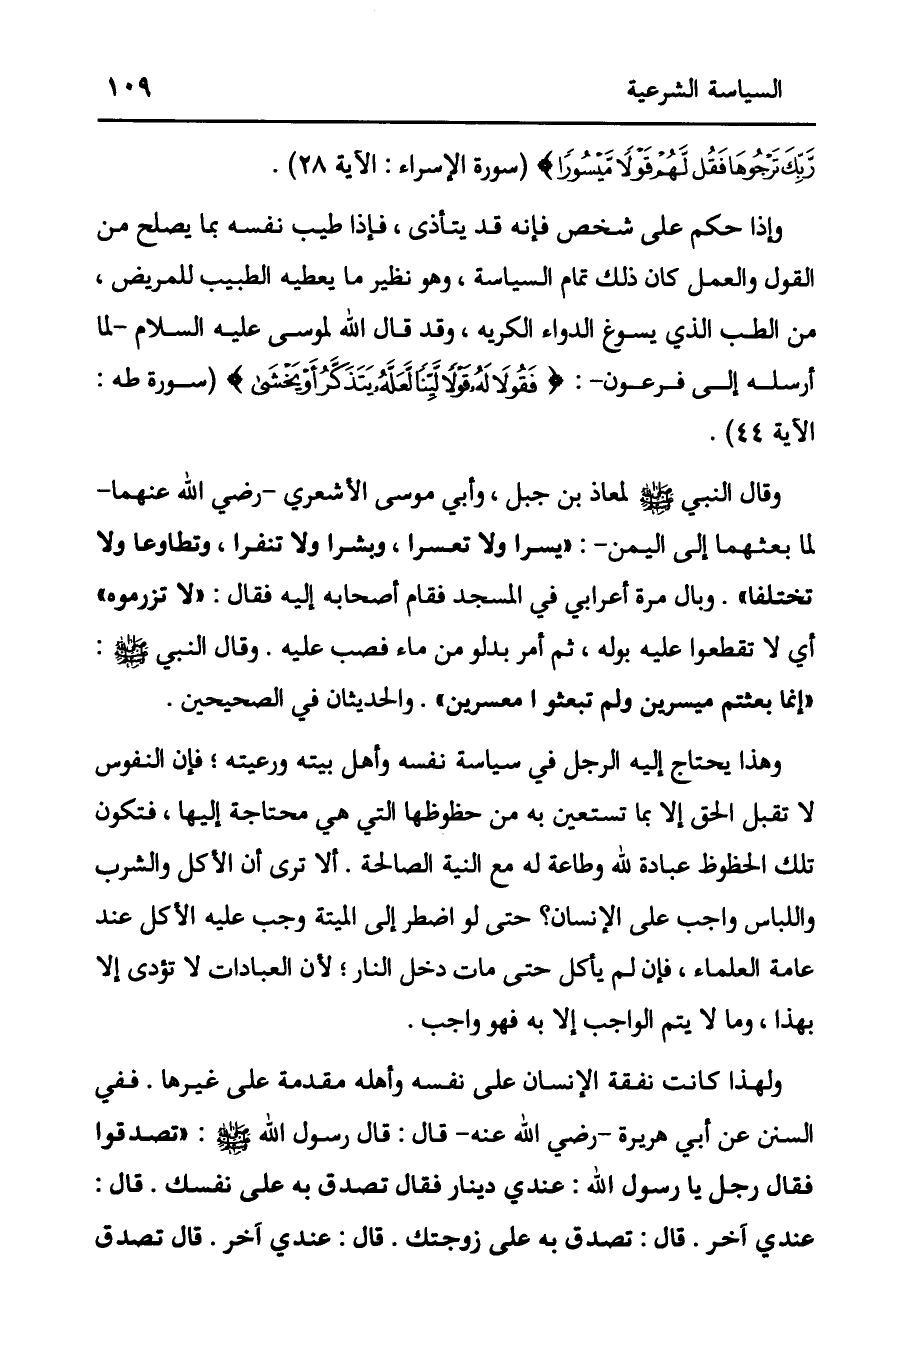 السياسة الشرعية ١٠٩
رَّبِّكَ تَرْجُوهَا فَقُل لَّهُمْ قَوْلًا مَّيْسُورًا ﴾ (سورة الإسراء : الآية ٢٨) .
وإذا حكم على شخص فإنه قد يتأذى ، فإذا طيب نفسه بما يصلح من
القول والعمل كان ذلك تمام السياسة ، وهو نظير ما يعطيه الطبيب للمريض ،
من الطب الذي يسوغ الدواء الكريه ، وقد قال الله لموسى عليه السلام -لما
أرسله إلى فرعون- : ﴿ فَقُولَا لَهُۥ قَوْلًا لَّيِّنًا لَّعَلَّهُۥ يَتَذَكَّرُ أَوْ يَخْشَىٰ ﴾ (سورة طه :
الآية ٤٤) .
وقال النبي ﷺ لمعاذ بن جبل ، وأبي موسى الأشعري -رضي الله عنهما-
لما بعثهما إلى اليمن- : «يسرا ولا تعسرا ، وبشرا ولا تنفرا ، وتطاوعا ولا
تختلفا» . وبال مرة أعرابي في المسجد فقام أصحابه إليه فقال : «لا تزرموه»
أي لا تقطعوا عليه بوله ، ثم أمر بدلو من ماء فصب عليه . وقال النبي ﷺ :
«إنما بعثتم ميسرين ولم تبعثو ا معسرين» . والحديثان في الصحيحين .
وهذا يحتاج إليه الرجل في سياسة نفسه وأهل بيته ورعيته ؛ فإن النفوس
لا تقبل الحق إلا بما تستعين به من حظوظها التي هي محتاجة إليها ، فتكون
تلك الحظوظ عبادة لله وطاعة له مع النية الصالحة . ألا ترى أن الأكل والشرب
واللباس واجب على الإنسان؟ حتى لو اضطر إلى الميتة وجب عليه الأكل عند
عامة العلماء ، فإن لم يأكل حتى مات دخل النار ؛ لأن العبادات لا تؤدى إلا
بهذا ، وما لا يتم الواجب إلا به فهو واجب .
ولهذا كانت نفقة الإنسان على نفسه وأهله مقدمة على غيرها . ففي
السنن عن أبي هريرة -رضي الله عنه- قال : قال رسول الله ﷺ : «تصدقوا
فقال رجل يا رسول الله : عندي دينار فقال تصدق به على نفسك . قال :
عندي آخر . قال : تصدق به على زوجتك . قال : عندي آخر . قال تصدق